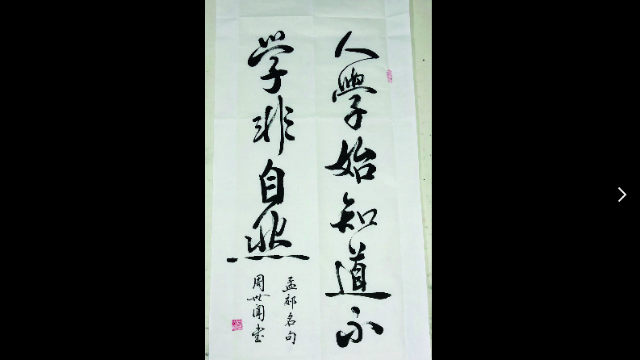 人學始知道不
学非自然
孟郊名句
周世闻书